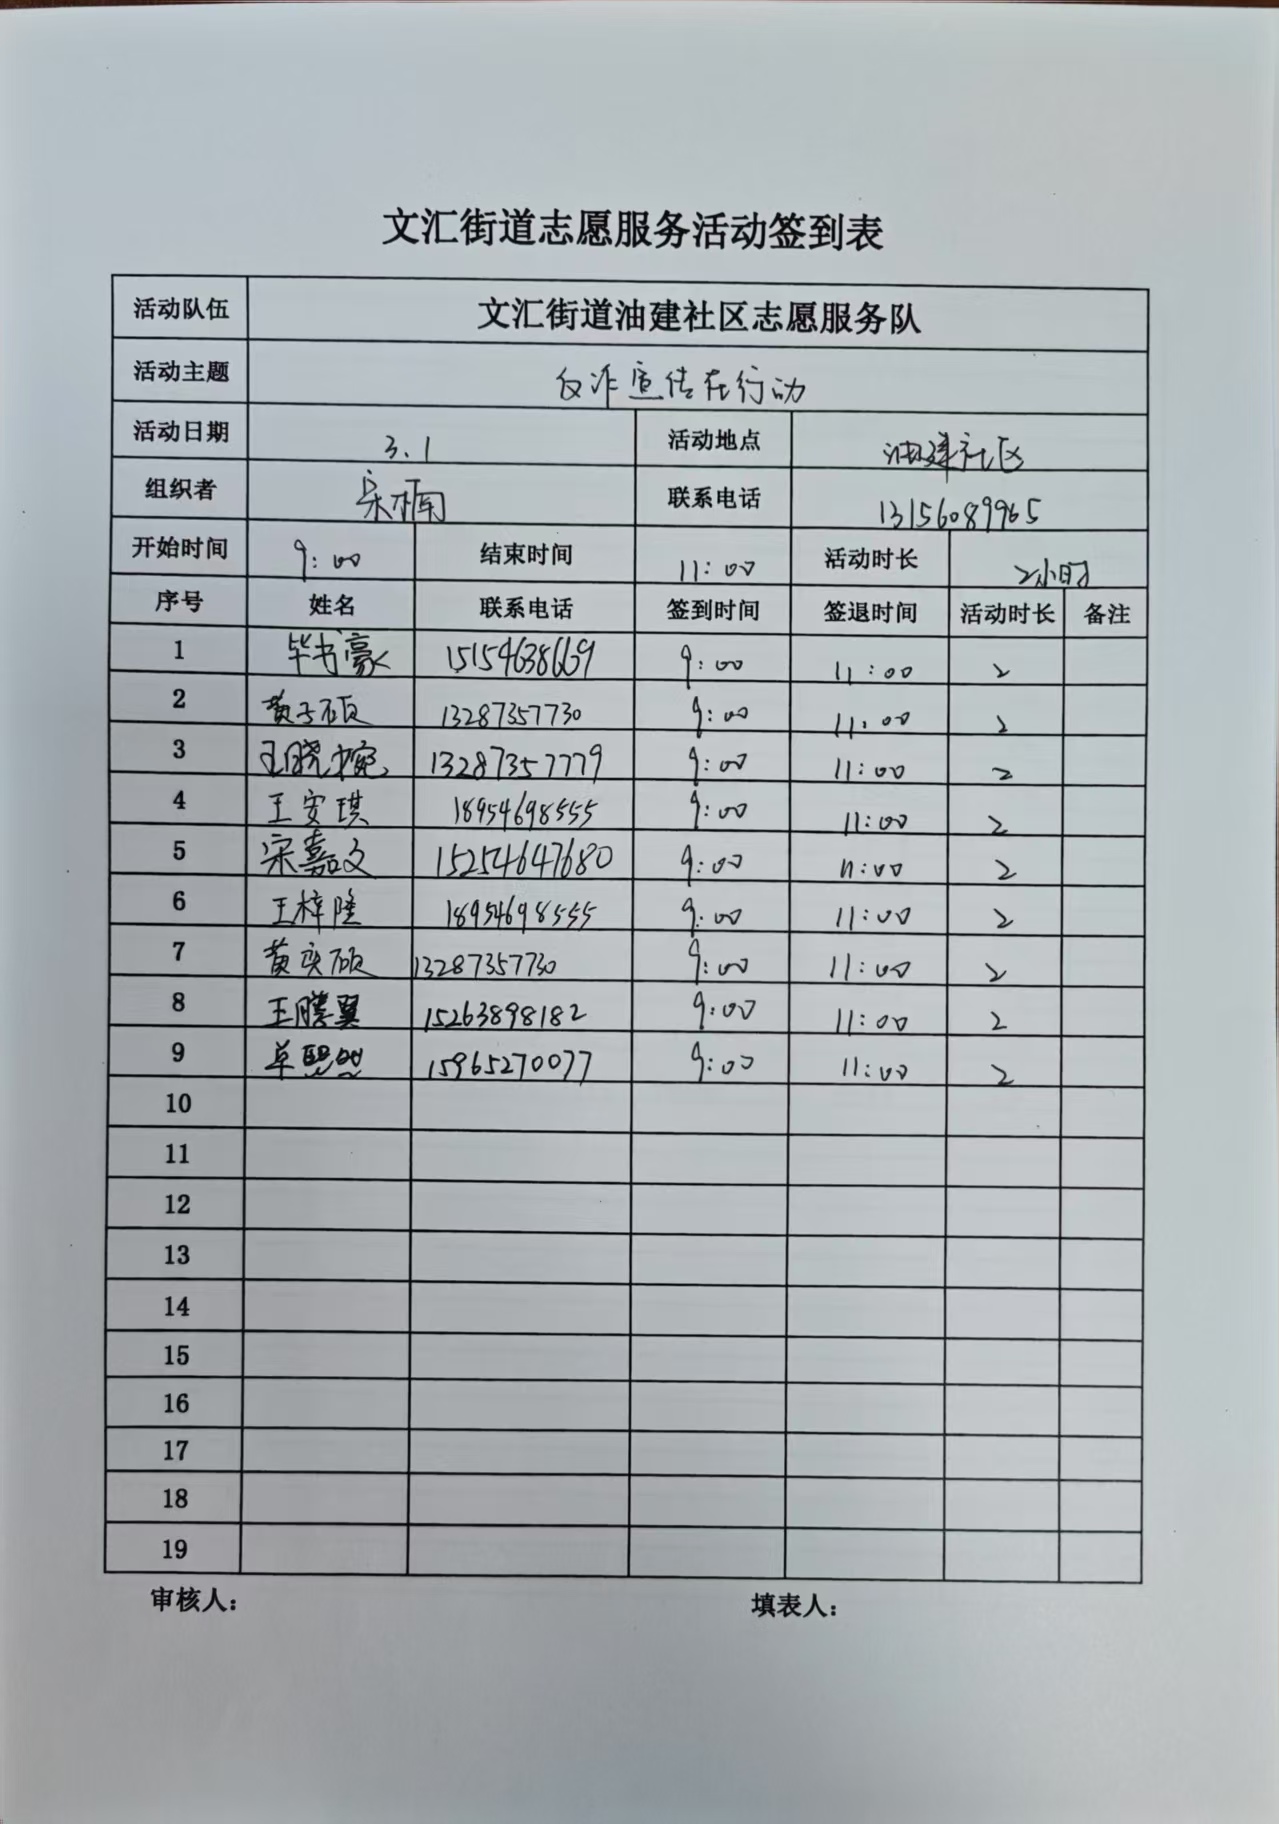 文汇街道志愿服务活动签到表
活动队伍 文汇街道油建社区志愿服务队
活动主题 反诈宣传在行动
活动日期 3.1 活动地点 油建社区
组织者 宋楠 联系电话 13156089965
开始时间 9:00 结束时间 11:00 活动时长 2小时
序号 姓名 联系电话 签到时间 签退时间 活动时长 备注
1 毕书豪 15154638669 9:00 11:00 2
2 黄子硕 13287357730 9:00 11:00 2
3 王晓 13287357779 9:00 11:00 2
4 王安琪 18954698555 9:00 11:00 2
5 宋嘉文 15254647680 9:00 11:00 2
6 王梓隆 18954698555 9:00 11:00 2
7 黄奕硕 13287357730 9:00 11:00 2
8 王腾翼 15263898182 9:00 11:00 2
9 15965270077 9:00 11:00 2
10
11
12
13
14
15
16
17
18
19
审核人: 填表人: